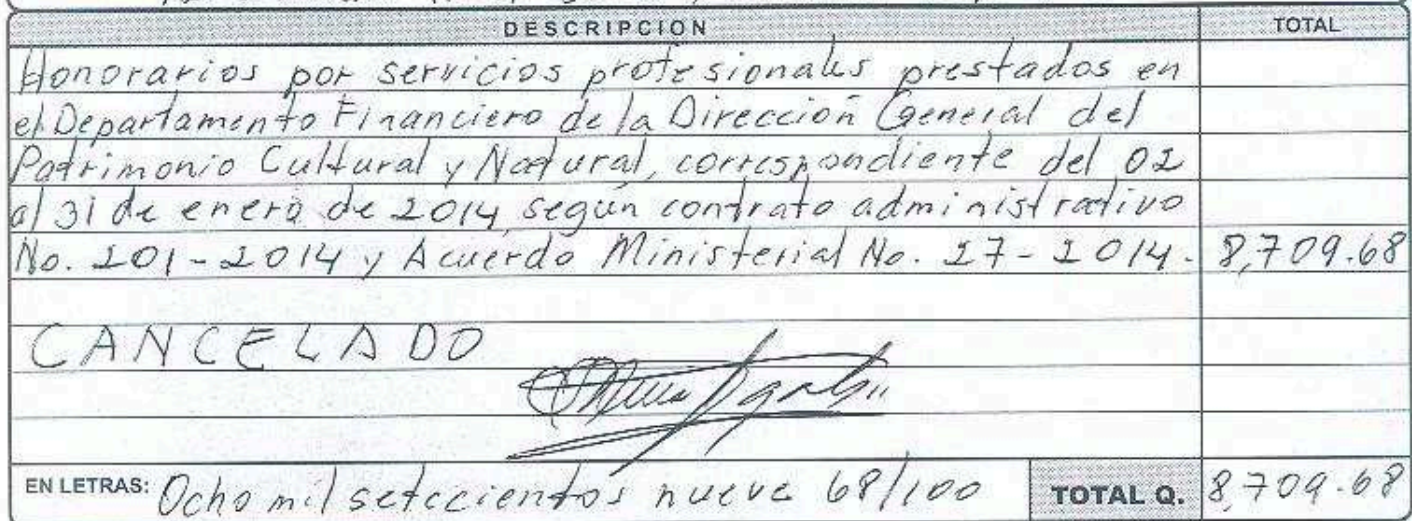 DESCRIPCION TOTAL
Honorarios por servicios profesionales prestados en
el Departamento Financiero de la Dirección General del
Patrimonio Cultural y Natural, correspondiente del 02
al 31 de enero de 2014, según contrato administrativo
No. 201-2014 y Acuerdo Ministerial No. 27-2014. 8,709.68
CANCELADO
EN LETRAS: Ocho mil setecientos nueve 68/100 TOTAL Q. 8,709.68